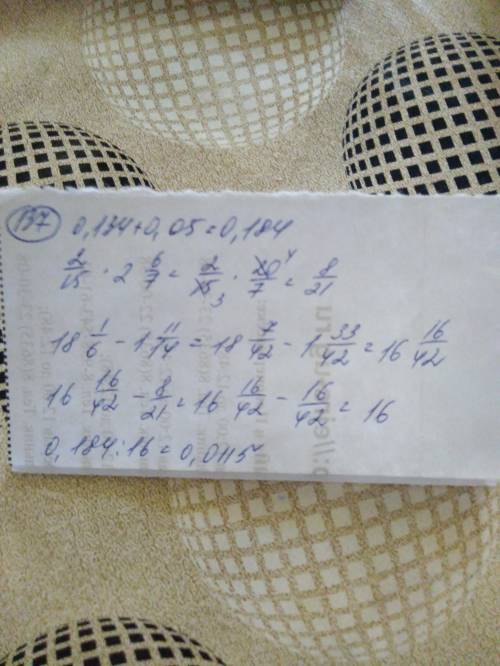 137 0,134+0,05=0,184
2/15 · 2 6/7 = 2/15 3 · 20 4/7 = 8/21
18 1/6 - 1 11/14 = 18 7/42 - 1 33/42 = 16 16/42
16 16/42 - 8/21 = 16 16/42 - 16/42 = 16
0,184:16=0,0115